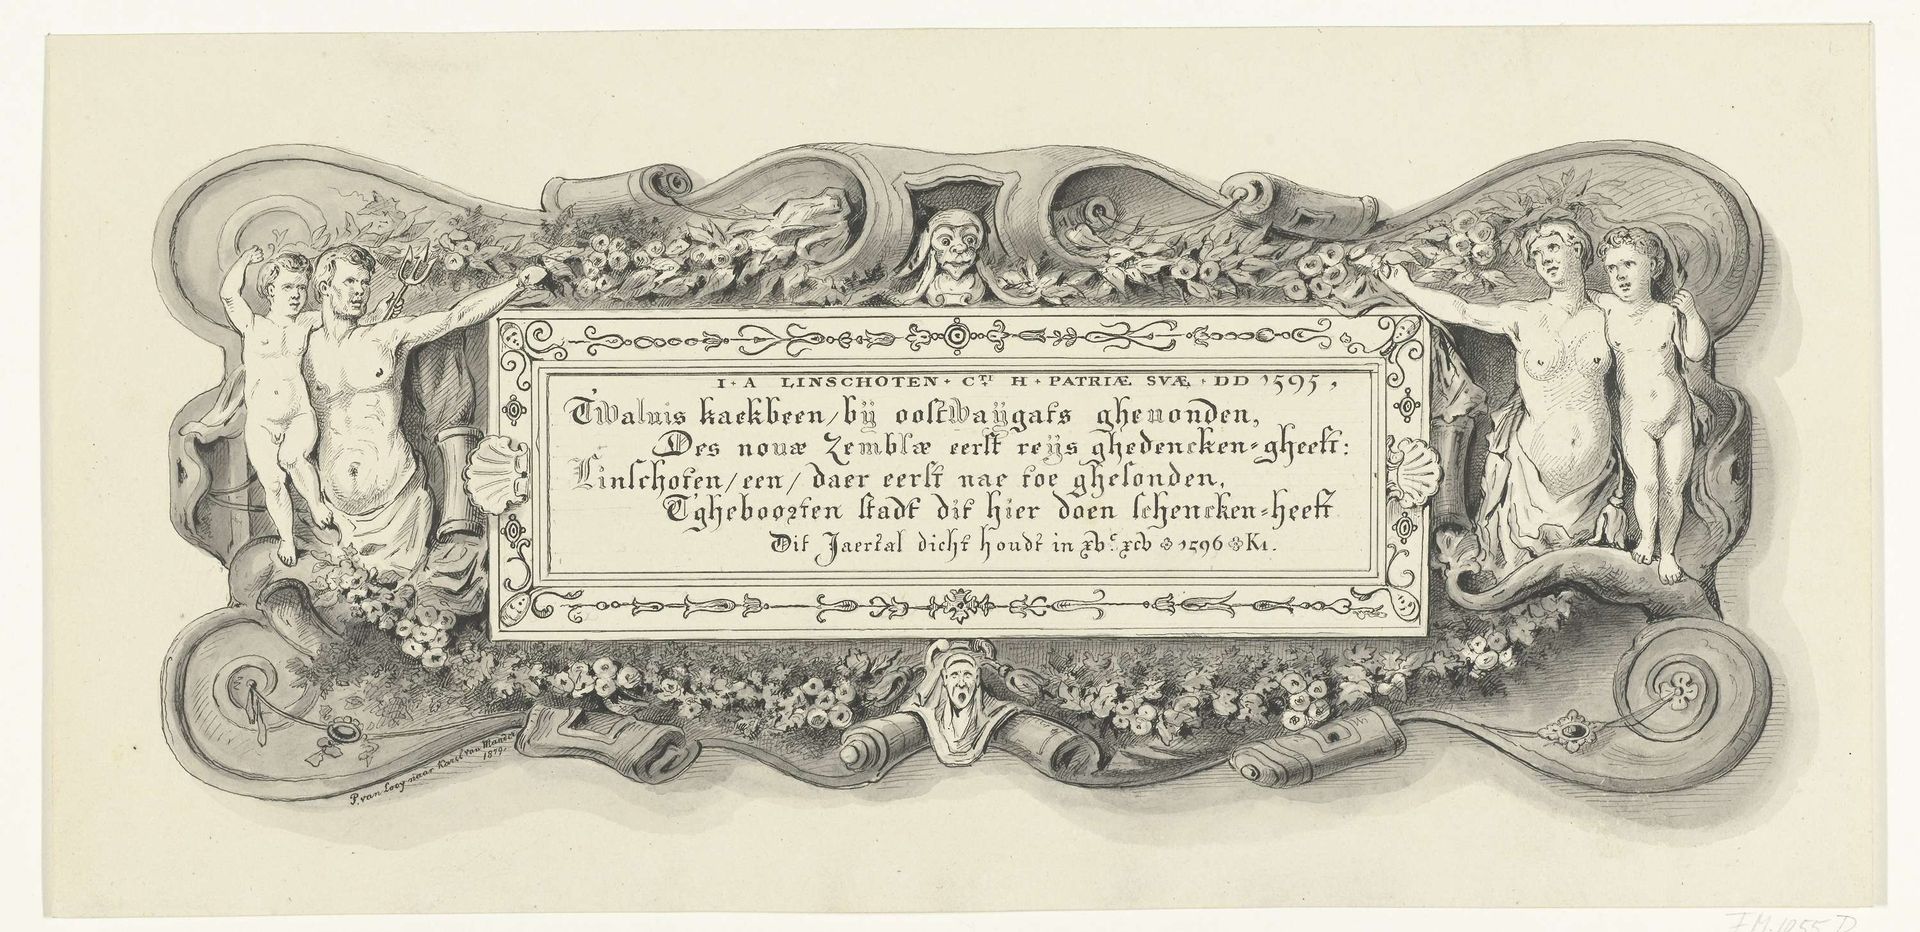 I · A LINSCHOTEN · CTI H · PATRIÆ SVÆ · DD 1595,
T'Waluis kaekbeen/bÿ oostwaÿgats gheuonden,
Des nouæ Zemblæ eerst reÿs ghedencken=gheeft:
Linschoten/een/daer eerst nae toe ghesonden,
T'gheboorten stadt dit hier doen schencken=heeft
Dit Jaertal dicht houdt in xvc xcv 1596 K1.
P. van Looy naar Karel van Mander
1879.
FM.1055D